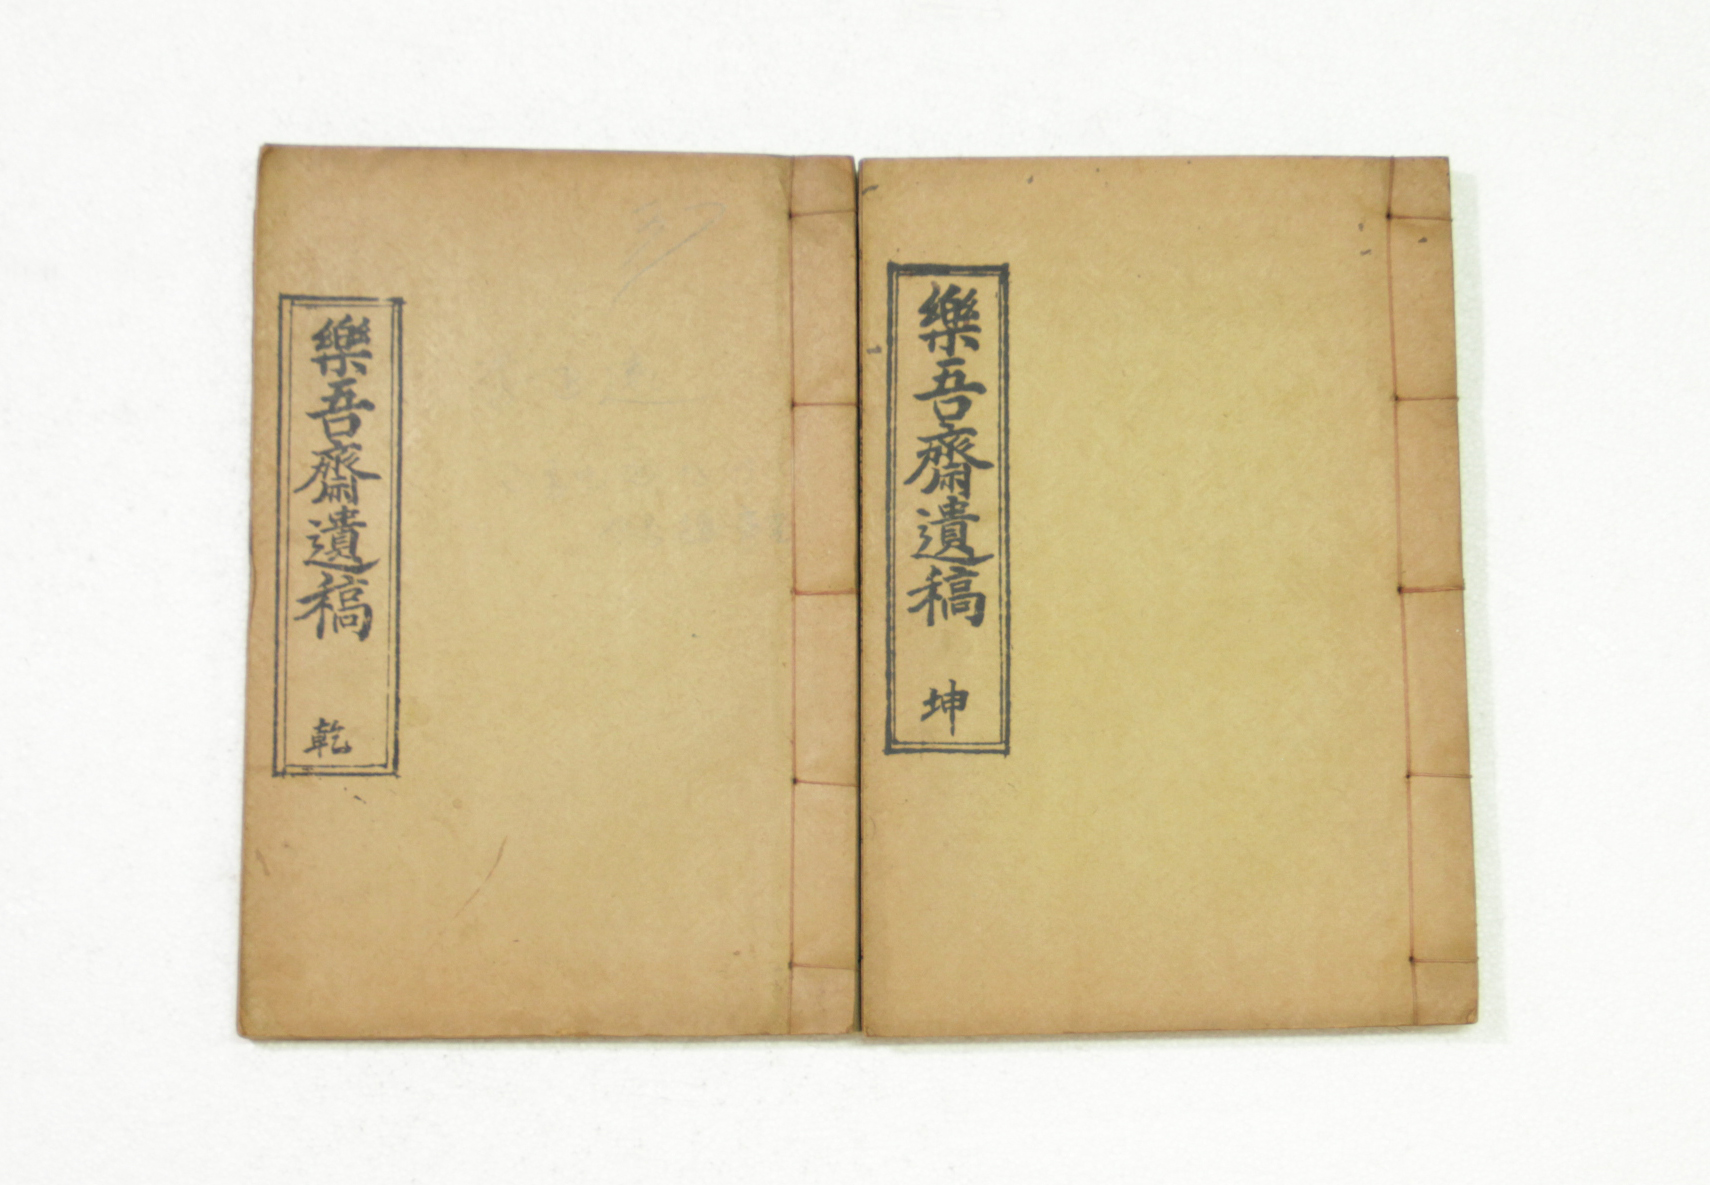 樂吾齋遺稿
乾
樂吾齋遺稿
坤